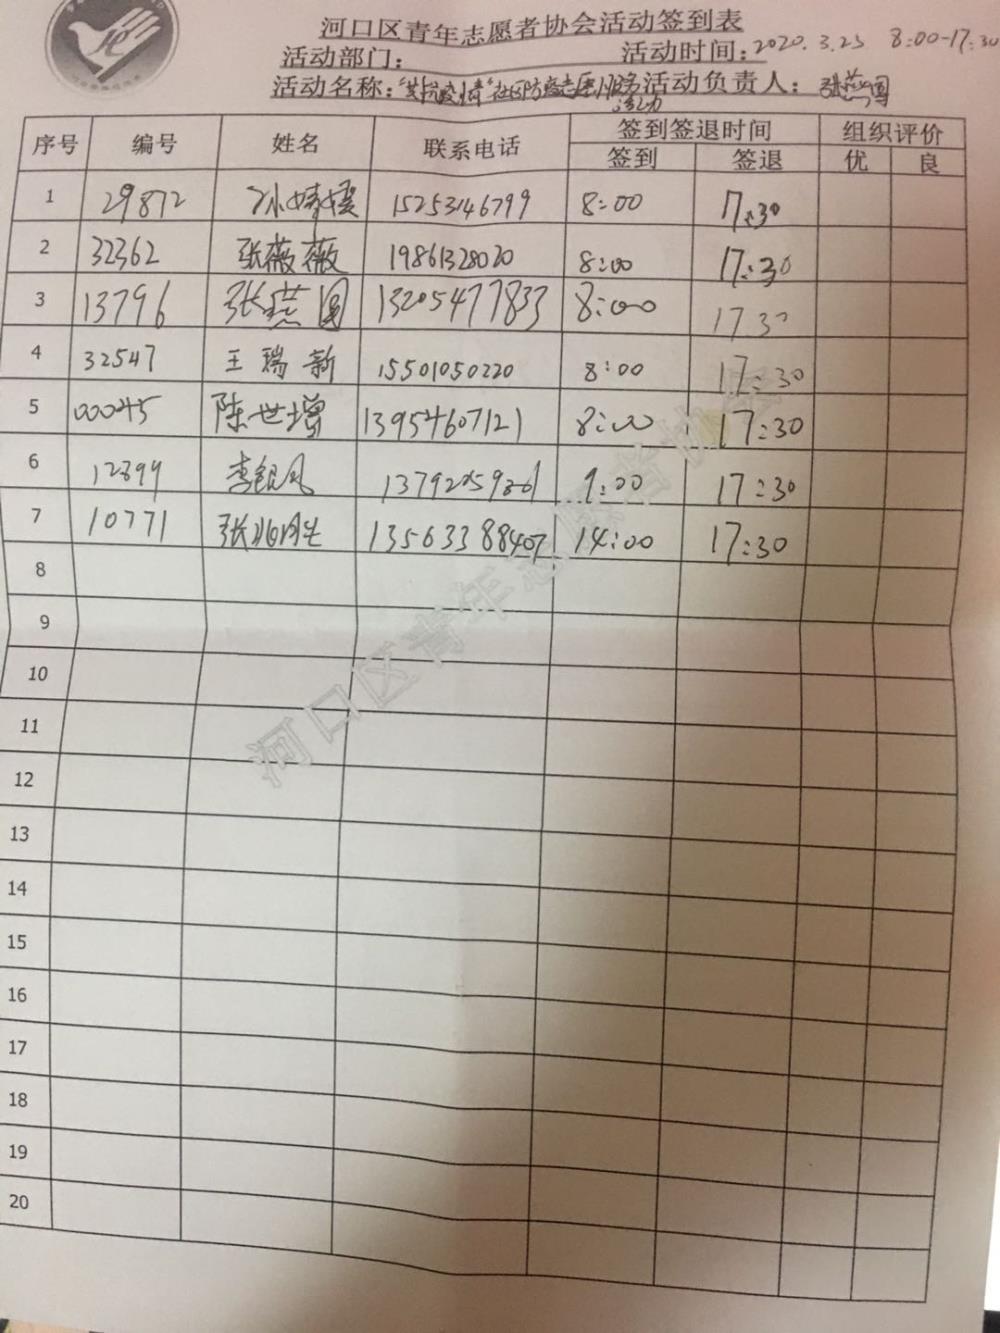 河口区青年志愿者协会活动签到表
活动部门： 活动时间：2020.3.23 8:00-17:30
活动名称："共抗疫情"社区防疫志愿服务活动 活动负责人：张燕圆
序号 编号 姓名 联系电话 签到签退时间 组织评价
签到 签退 优 良
1 29872 孙婧媛 15253146799 8:00 17:30
2 32362 张薇薇 19861328020 8:00 17:30
3 13796 张燕圆 13205477833 8:00 17 30
4 32547 王瑞新 15501050220 8:00 17:30
5 00045 陈世增 13954607121 8:00 17:30
6 12399 李银凤 9:00 17:30
7 10771 张 13563388407 14:00 17:30
8
9
10
11
12
13
14
15
16
17
18
19
20
河口区青年志愿者协会